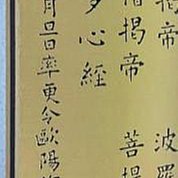 揭帝 波羅
揭帝 菩
心經
月旦日率更令歐陽